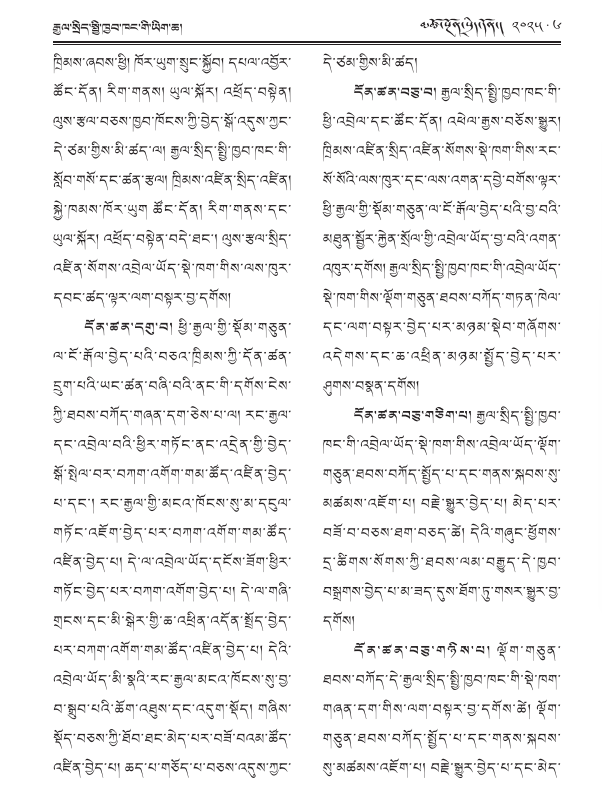 རྒྱལ་སྲིད་སྤྱི་ཁྱབ་ཁང་གི་ཡིག་ཆ།
༢༠༢༥ · ༧
ཁྲིམས་ཞབས་ཕྱི། ཁོར་ཡུག་སྲུང་སྐྱོབ། དཔལ་འབྱོར་
ཚོང་དོན། རིག་གནས། ཡུལ་སྐོར། འཕྲོད་བསྟེན།
ལུས་རྩལ་བཅས་ཁྱབ་ཁོངས་ཀྱི་བྱེད་སྒོ་འདུས་ཀྱང་
དེ་ཙམ་གྱིས་མི་ཚད་ལ། རྒྱལ་སྲིད་སྤྱི་ཁྱབ་ཁང་གི་
སློབ་གསོ་དང་ཚན་རྩལ། ཁྲིམས་འཛིན་སྲིད་འཛིན།
སྐྱེ་ཁམས་ཁོར་ཡུག ཚོང་དོན། རིག་གནས་དང་
ཡུལ་སྐོར། འཕྲོད་བསྟེན་བདེ་ཐང་། ལུས་རྩལ་སྲིད་
འཛིན་སོགས་འབྲེལ་ཡོད་སྡེ་ཁག་གིས་ལས་ཁུར་
དབང་ཚད་ལྟར་ལག་བསྟར་བྱ་དགོས།
དོན་ཚན་དགུ་བ། ཕྱི་རྒྱལ་གྱི་སྡོམ་གཟུན་
ལ་ངོ་རྒོལ་བྱེད་པའི་བཅའ་ཁྲིམས་ཀྱི་དོན་ཚན་
དྲུག་པའི་ཡང་ཚན་བཞི་བའི་ནང་གི་དགོས་ངེས་
ཀྱི་ཐབས་བཀོད་གཞན་དག་ཅེས་པ་ལ། རང་རྒྱལ་
དང་འབྲེལ་བའི་ཕྱིར་གཏོང་ནང་འདྲེན་གྱི་བྱེད་
སྒོ་སྤེལ་བར་བཀག་འགོག་གམ་ཚོད་འཛིན་བྱེད་
པ་དང་། རང་རྒྱལ་གྱི་མངའ་ཁོངས་སུ་མ་དངུལ་
གཏོང་འཇོག་བྱེད་པར་བཀག་འགོག་གམ་ཚོད་
འཛིན་བྱེད་པ། དེ་ལ་འབྲེལ་ཡོད་དངོས་ཟོག་ཕྱིར་
གཏོང་བྱེད་པར་བཀག་འགོག་བྱེད་པ། དེ་ལ་གཞི་
གྲངས་དང་མི་སྒེར་གྱི་ཆ་འཕྲིན་འདོན་སྤྲོད་བྱེད་
པར་བཀག་འགོག་གམ་ཚོད་འཛིན་བྱེད་པ། དེའི་
འབྲེལ་ཡོད་མི་སྣའི་རང་རྒྱལ་མངའ་ཁོངས་སུ་བྱ་
བ་སྒྲུབ་པའི་ཆོག་འཐུས་དང་འདུག་སྡོད། གཞིས་
སྡོད་བཅས་ཀྱི་ཐོབ་ཐང་མེད་པར་བཟོ་བའམ་ཚོད་
འཛིན་བྱེད་པ། ཆད་པ་གཅོད་པ་བཅས་འདུས་ཀྱང་
དེ་ཙམ་གྱིས་མི་ཚད།
དོན་ཚན་བཅུ་བ། རྒྱལ་སྲིད་སྤྱི་ཁྱབ་ཁང་གི་
ཕྱི་འབྲེལ་དང་ཚོང་དོན། འཕེལ་རྒྱས་བཅོས་སྒྱུར།
ཁྲིམས་འཛིན་སྲིད་འཛིན་སོགས་སྡེ་ཁག་གིས་རང་
སོ་སོའི་ལས་ཁུར་དང་ལས་འགན་དབྱེ་བགོས་ལྟར་
ཕྱི་རྒྱལ་གྱི་སྡོམ་གཟུན་ལ་ངོ་རྒོལ་བྱེད་པའི་བྱ་བའི་
མཐུན་སྦྱོར་རྐྱེན་སྲོལ་གྱི་འབྲེལ་ཡོད་བྱ་བའི་འགན་
འཁུར་དགོས། རྒྱལ་སྲིད་སྤྱི་ཁྱབ་ཁང་གི་འབྲེལ་ཡོད་
སྡེ་ཁག་གིས་ལྡོག་གཟུན་ཐབས་བཀོད་གཏན་ཁེལ་
དང་ལག་བསྟར་བྱེད་པར་མཉམ་སྡེབ་གཞོགས་
འདེགས་དང་ཆ་འཕྲིན་མཉམ་སྤྱོད་བྱེད་པར་
ཤུགས་བསྣན་དགོས།
དོན་ཚན་བཅུ་གཅིག་པ། རྒྱལ་སྲིད་སྤྱི་ཁྱབ་
ཁང་གི་འབྲེལ་ཡོད་སྡེ་ཁག་གིས་འབྲེལ་ཡོད་ལྡོག་
གཟུན་ཐབས་བཀོད་སྤྱོད་པ་དང་གནས་སྐབས་སུ་
མཚམས་འཇོག་པ། བརྗེ་སྒྱུར་བྱེད་པ། མེད་པར་
བཟོ་བ་བཅས་ཐག་བཅད་ཚེ། དེའི་གཞུང་ཕྱོགས་
དྲ་ཚིགས་སོགས་ཀྱི་ཐབས་ལམ་བརྒྱུད་དེ་ཁྱབ་
བསྒྲགས་བྱེད་པ་མ་ཟད་དུས་ཐོག་ཏུ་གསར་སྒྱུར་བྱ་
དགོས།
དོན་ཚན་བཅུ་གཉིས་པ། ལྡོག་གཟུན་
ཐབས་བཀོད་དེ་རྒྱལ་སྲིད་སྤྱི་ཁྱབ་ཁང་གི་སྡེ་ཁག་
གཞན་དག་གིས་ལག་བསྟར་བྱ་དགོས་ཚེ། ལྡོག་
གཟུན་ཐབས་བཀོད་སྤྱོད་པ་དང་གནས་སྐབས་
སུ་མཚམས་འཇོག་པ། བརྗེ་སྒྱུར་བྱེད་པ་དང་མེད་